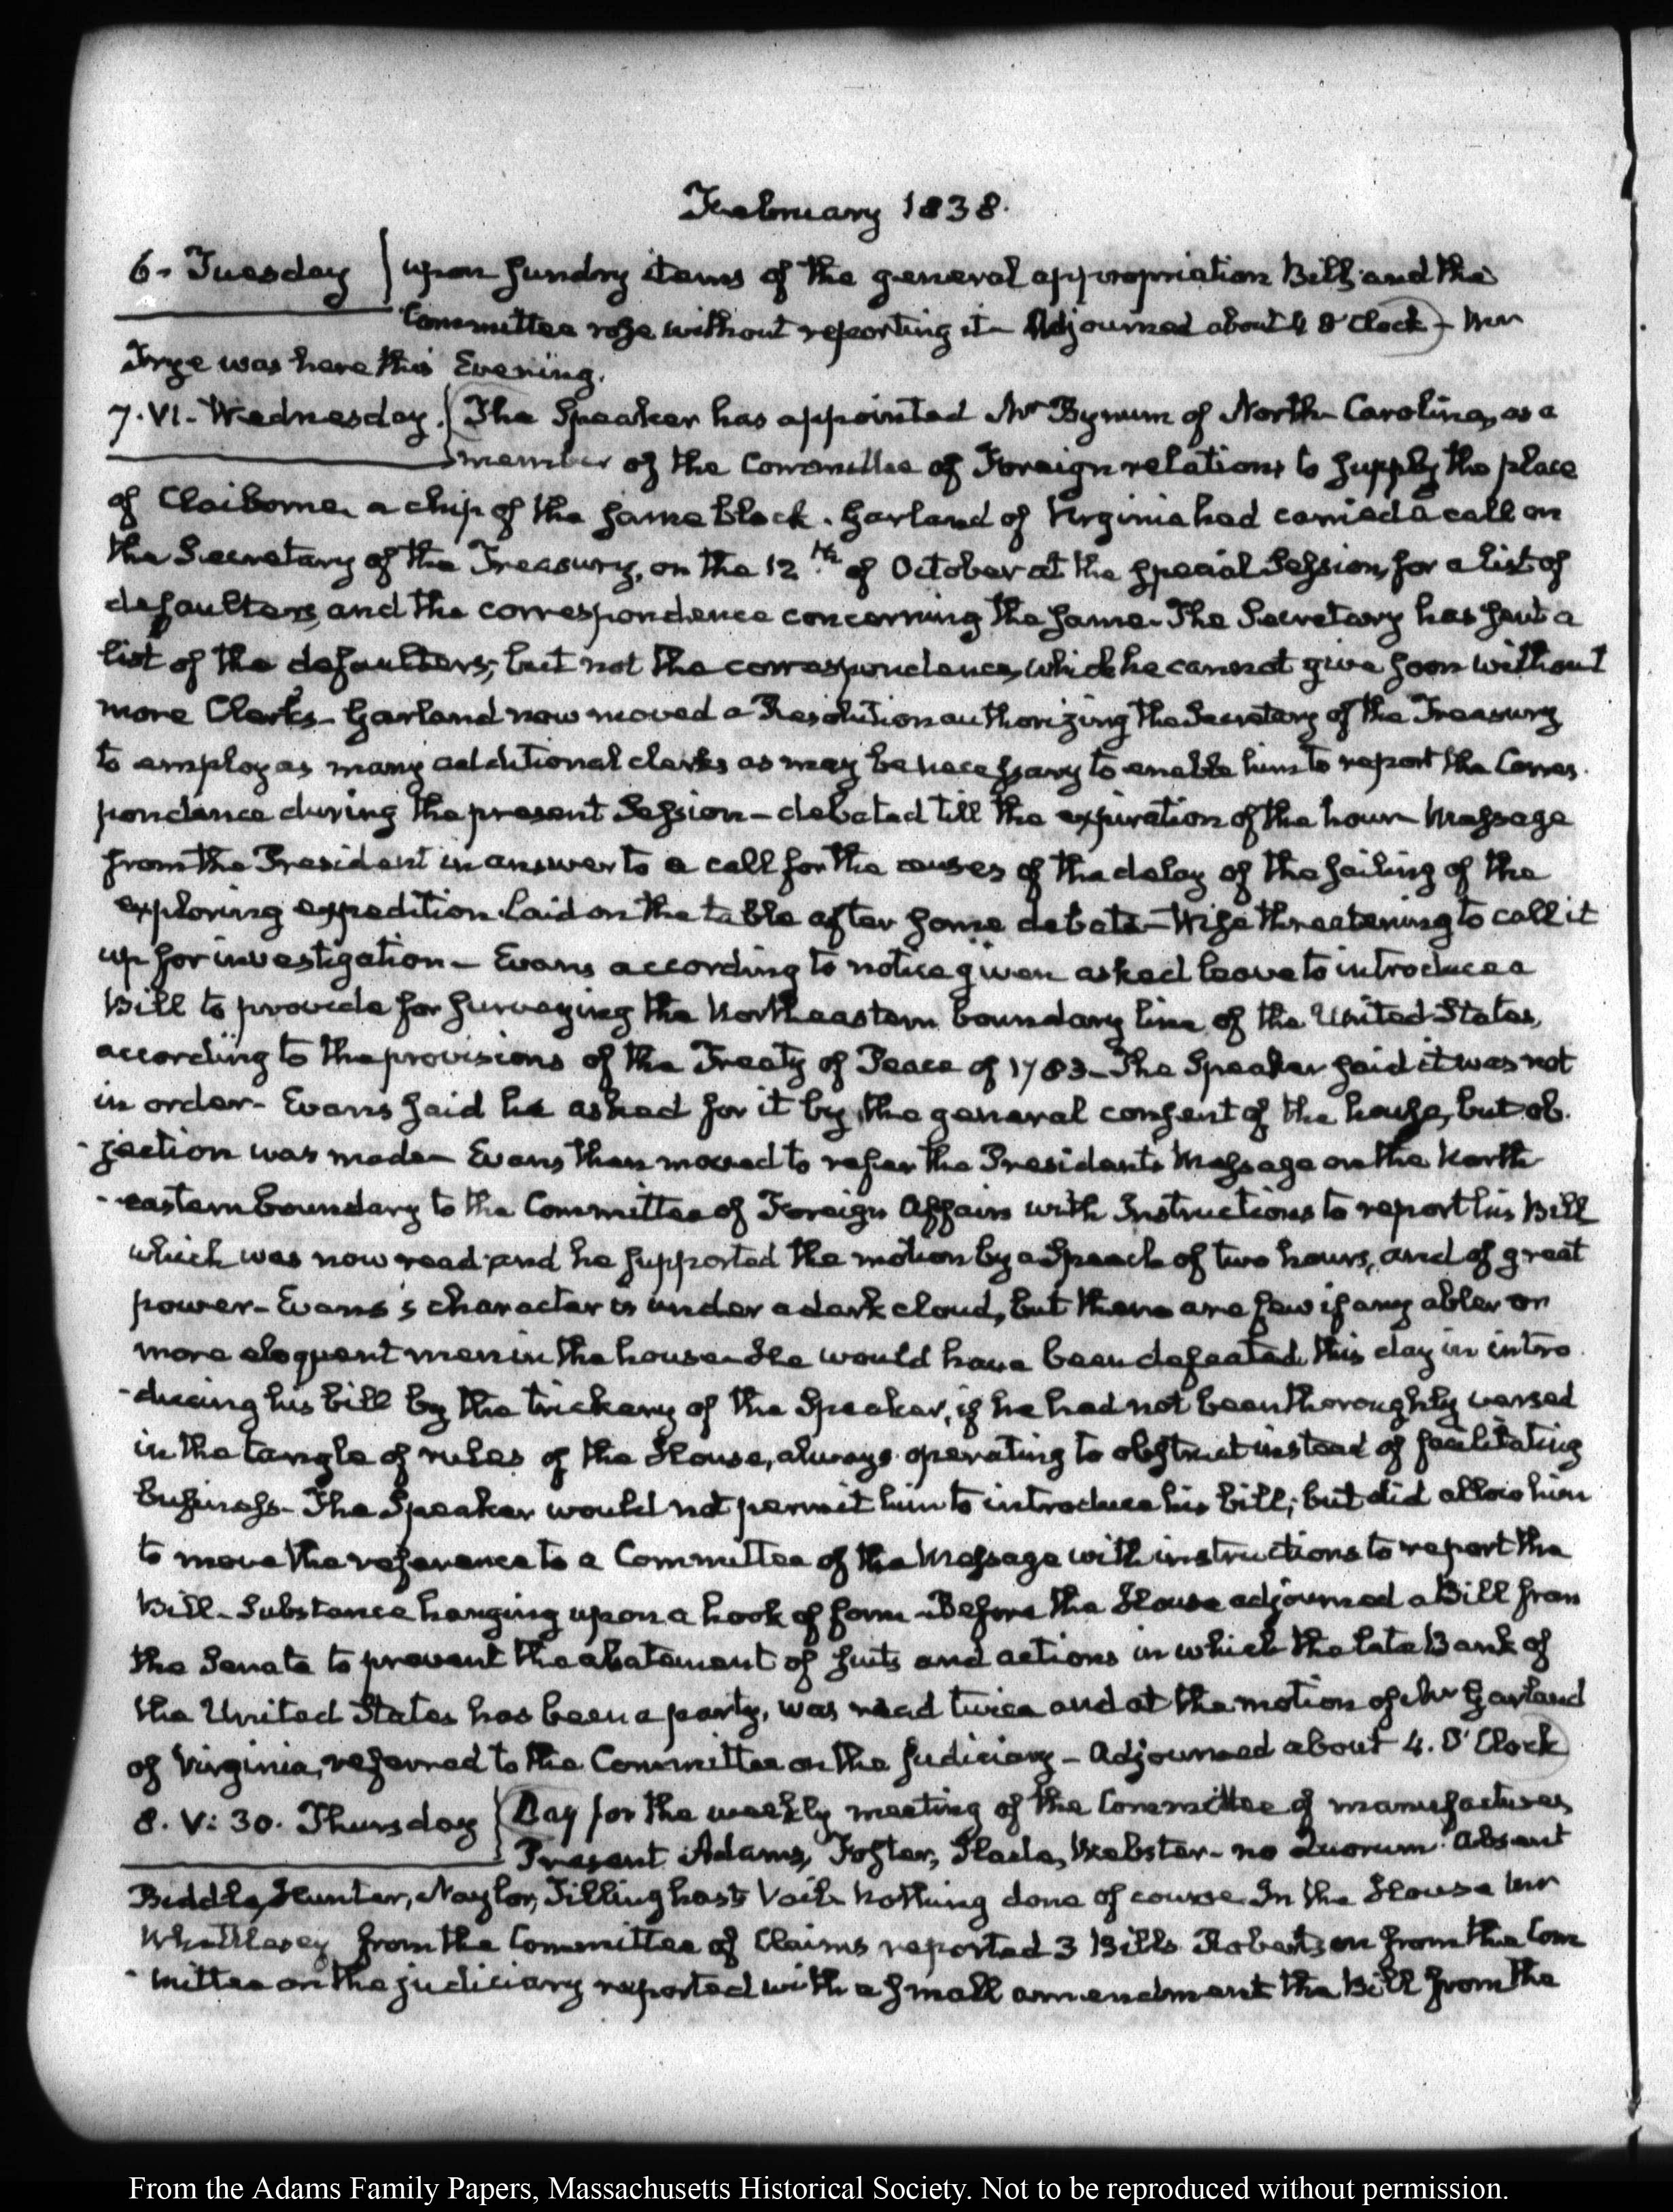 February 1838.
6. Tuesday upon sundry items of the general appropriation Bill and the
Committee rose without reporting it — Adjourned about 4 O'Clock — Mr
Frye was here this Evening.
7. VI. Wednesday. The Speaker has appointed Mr Bynum of North-Carolina, as a
member of the Committee of Foreign relations to supply the place
of Claiborne, a chip of the same block. Garland of Virginia had carried a call on
the Secretary of the Treasury, on the 12th. of October at the special Session, for a list of
defaulters, and the correspondence concerning the same. The Secretary has sent a
list of the defaulters; but not the correspondence, which he cannot give soon without
more Clerks — Garland now moved a Resolution authorizing the Secretary of the Treasury
to employ as many additional clerks as may be necessary to enable him to report the Corres
pondence during the present Session — debated till the expiration of the hour — Message
from the President in answer to a call for the causes of the delay of the sailing of the
exploring expedition. Laid on the table after some debate — Wise threatening to call it
up for investigation — Evans according to notice given asked leave to introduce a
Bill to provide for surveying the Northeastern boundary line of the United States,
according to the provisions of the Treaty of Peace of 1783 — The Speaker said it was not
in order — Evans said he asked for it by the general consent of the house, but ob.
-jection was made — Evans then moved to refer the President's Message on the North
-eastern boundary to the Committee of Foreign Affairs with Instructions to report his Bill
which was now read and he supported the motion by a Speech of two hours, and of great
power — Evans's character is under a dark cloud, but there are few if any abler or
more eloquent men in the house — He would have been defeated this day in intro
-ducing his bill by the trickery of the Speaker, if he had not been thoroughly versed
in the tangle of rules of the House, always operating to obstruct instead of facilitating
business — The Speaker would not permit him to introduce his bill; but did allow him
to move the reference to a Committee of the Message with instructions to report the
Bill — Substance hanging upon a hook of form — Before the House adjourned a Bill from
the Senate to prevent the abatement of suits and actions in which the late Bank of
the United States has been a party, was read twice and at the motion of Mr Garland
of Virginia, referred to the Committee on the Judiciary — Adjourned about 4. O'Clock
8. V: 30. Thursday Day for the weekly meeting of the Committee of manufactures
Present Adams, Foster, Slade, Webster — no Quorum. Absent
Biddle, Hunter, Naylor, Tillinghast, Vail. Nothing done of course. In the House Mr
Whittlesey from the Committee of Claims reported 3 Bills Robertson from the Com
-mittee on the judiciary reported with a small amendment the Bill from the
From the Adams Family Papers, Massachusetts Historical Society. Not to be reproduced without permission.